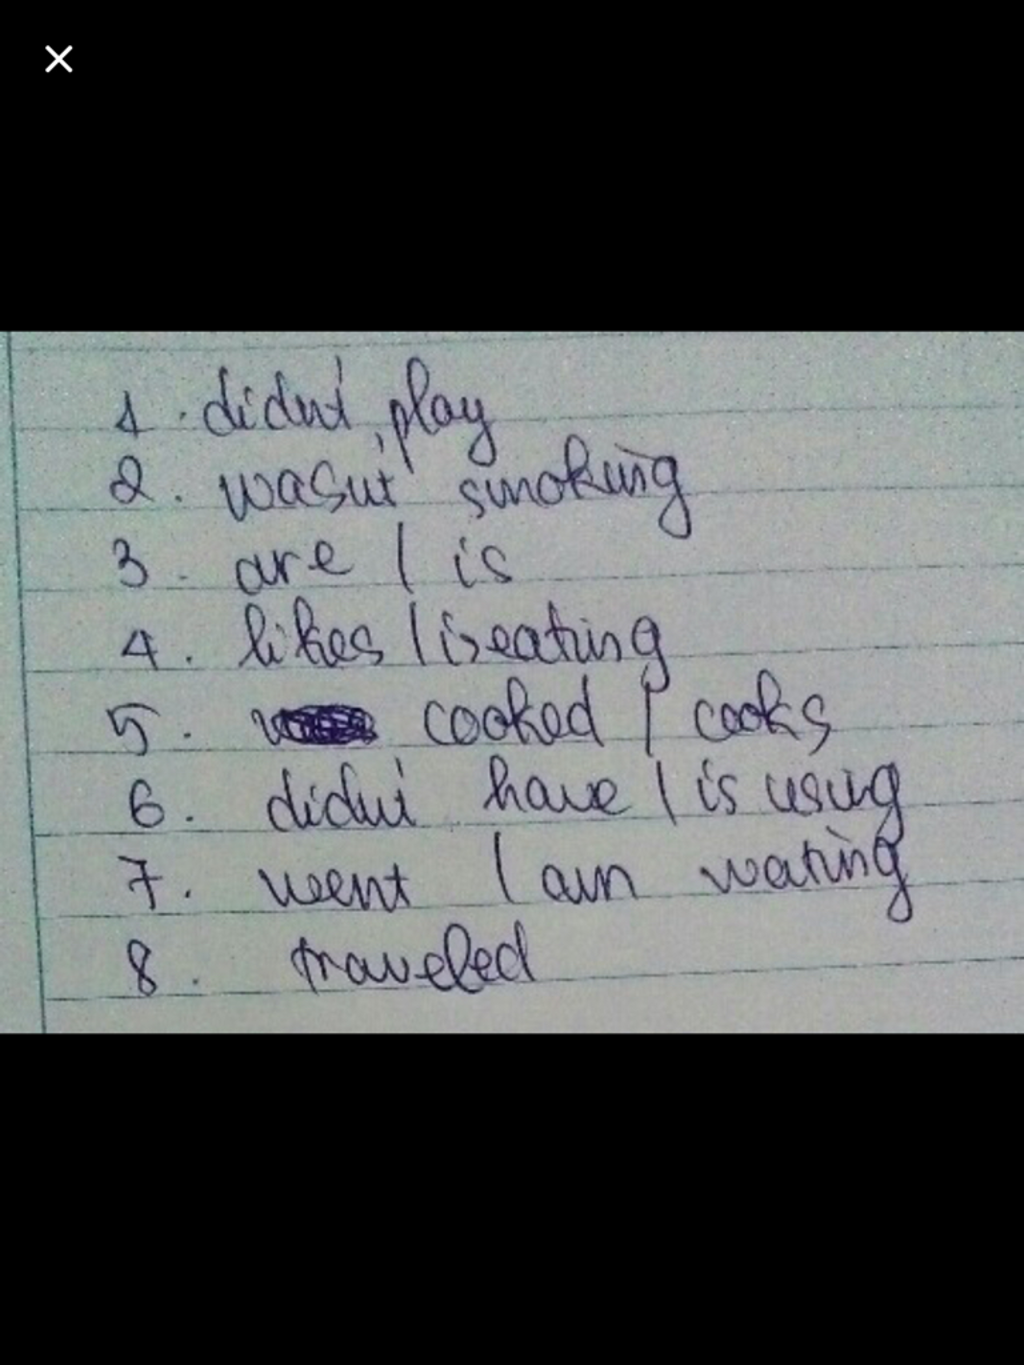 1. didn't play
2. wasn't smoking
3. are / is
4. likes / is eating
5. cooked / cooks
6. didn't have / is using
7. went / am wating
8. traveled